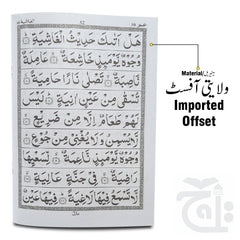 هَلْ اَتٰىكَ حَدِيْثُ الْغَاشِيَةِ
وُجُوْهٌ يَّوْمَىِٕذٍ خَاشِعَةٌ عَامِلَةٌ
نَّاصِبَةٌ تَصْلٰى نَارًا حَامِيَةً
تُسْقٰى مِنْ عَيْنٍ اٰنِيَةٍ لَيْسَ
لَهُمْ طَعَامٌ اِلَّا مِنْ ضَرِيْعٍ
لَّا يُسْمِنُ وَلَا يُغْنِيْ مِنْ جُوْعٍ
وُجُوْهٌ يَّوْمَىِٕذٍ نَّاعِمَةٌ لِّسَعْيِهَا
رَاضِيَةٌ فِيْ جَنَّةٍ عَالِيَةٍ
لَّا تَسْمَعُ فِيْهَا لَاغِيَةً فِيْهَا عَيْنٌ
Material/میٹریل
ولایتی آفسٹ
Imported
Offset